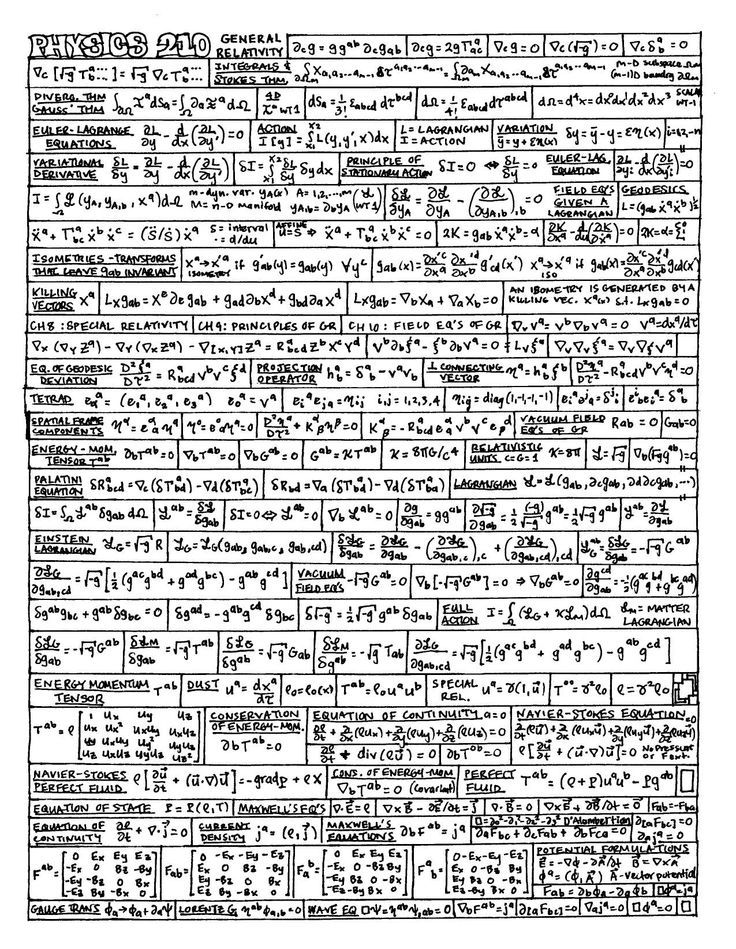 PHYSICS 210 GENERAL RELATIVITY | ∂cg = gg^ab ∂cgab | ∂cg = 2gΓ^a_ac | ∇cg = 0 | ∇c(√-g) = 0 | ∇cδ^a_b = 0
∇c[√-g T^a_b...] = √-g ∇cT^a_b... | INTEGRALS & STOKES THM.
DIVERG. THM GAUSS' THM | 4D WT1 | dSa = 1/3! εabcd dτ^bcd | dΩ = 1/4! εabcd dτ^abcd | dΩ = d⁴x = dx⁰dx¹dx²dx³ | SCALAR WT-1
EULER-LAGRANGE EQUATIONS ∂L/∂y - d/dx(∂L/∂y') = 0 | ACTION I[y] = ∫ L(y,y',x)dx | L = LAGRANGIAN I = ACTION | VARIATION ỹ = y + εη(x) | δy = ỹ - y = εη(x)
VARIATIONAL DERIVATIVE δL/δy = ∂L/∂y - d/dx(∂L/∂y') | δI = ∫ δL/δy δy dx | PRINCIPLE OF STATIONARY ACTION δI = 0 ⇔ δL/δy = 0 | EULER-LAG. EQUATION
I = ∫Ω ℒ(yA, yA,a, x^a)dΩ | m-dyn. var. yA(x) A = 1,2,...,m | yA,b = ∂byA | δℒ/δyA = ∂ℒ/∂yA - (∂ℒ/∂yA,b),b = 0 | FIELD EQ'S GIVEN A LAGRANGIAN | GEODESICS L = (gab ẋ^a ẋ^b)^½
ẍ^a + Γ^a_bc ẋ^b ẋ^c = (s̈/ṡ) ẋ^a | s = interval · = d/du | AFFINE u = s ⇒ ẍ^a + Γ^a_bc ẋ^b ẋ^c = 0 | 2K = gab ẋ^a ẋ^b = α | ∂K/∂x^a - d/du(∂K/∂ẋ^a) = 0
ISOMETRIES - TRANSFORMS THAT LEAVE gab INVARIANT | x^a → x'^a ISOMETRY if g'ab(y) = gab(y) ∀ y^c | gab(x) = ∂x'^c/∂x^a ∂x'^d/∂x^b g'cd(x') | x^a → x'^a ISO if gab(x) = ∂x'^c/∂x^a ∂x'^d/∂x^b gcd(x')
KILLING VECTORS X^a | LXgab = X^e ∂egab + gad∂bX^d + gbd∂aX^d | LXgab = ∇bXa + ∇aXb = 0 | AN ISOMETRY IS GENERATED BY A KILLING VEC. X^a(x) s.t. LXgab = 0
CH 8 : SPECIAL RELATIVITY | CH 9 : PRINCIPLES OF GR | CH 10 : FIELD EQ'S OF GR | ∇vv^a = v^b∇bv^a = 0 | v^a = dx^a/dτ
∇x(∇yZ^a) - ∇y(∇xZ^a) - ∇[x,y]Z^a = R^a_bcd Z^b X^c Y^d | v^b∂bξ^a - ξ^b∂bv^a = 0 | Lvξ^a | ∇v∇vξ^a = ∇v∇ξv^a
EQ. OF GEODESIC DEVIATION D²ξ^a/Dτ² = R^a_bcd v^b v^c ξ^d | PROJECTION OPERATOR h^a_b = δ^a_b - v^a vb | ⊥ CONNECTING VECTOR η^a = h^a_b ξ^b | D²η^a/Dτ² - R^a_bcd v^b v^c η^d = 0
TETRAD ei^a = (e1^a, e2^a, e3^a) e0^a = v^a | ei^a eja = ηij i,j = 1,2,3,4 | ηij = diag(1,-1,-1,-1) | e^i_a ej^a = δ^i_j | e^i_b ei^a = δ^a_b
SPATIAL FRAME COMPONENTS η^α = e^α_a η^a | η⁰ = e⁰_a η^a = 0 | D²η^α/Dτ² + K^α_β η^β = 0 | K^α_β = -R^a_bcd e^α_a v^b v^c eβ^d | VACUUM FIELD EQ'S OF GR Rab = 0 | Gab = 0
ENERGY-MOM. TENSOR T^ab | ∂bT^ab = 0 | ∇bT^ab = 0 | ∇bG^ab = 0 | G^ab = κT^ab | κ = 8πG/c⁴ | RELATIVISTIC UNITS c=G=1 | κ = 8π | ℒ = √-g | ∇b(√-g g^ab) = 0
PALATINI EQUATION δR^a_bcd = ∇c(δΓ^a_bd) - ∇d(δΓ^a_bc) | δRbd = ∇a(δΓ^a_bd) - ∇d(δΓ^a_ba) | LAGRANGIAN ℒ = ℒ(gab, ∂cgab, ∂d∂cgab, ...)
δI = ∫Ω ℒ^ab δgab dΩ | ℒ^ab = δℒ/δgab | δI = 0 ⇔ ℒ^ab = 0 | ∇bℒ^ab = 0 | ∂g/∂gab = gg^ab | ∂√-g/∂gab = ½ (-g)/√-g g^ab = ½√-g g^ab | ℒ^ab = ∂ℒ/∂gab
EINSTEIN LAGRANGIAN ℒG = √-g R | ℒG = ℒG(gab, gab,c, gab,cd) | δℒG/δgab = ∂ℒG/∂gab - (∂ℒG/∂gab,c),c + (∂ℒG/∂gab,cd),cd | ℒG^ab = δℒG/δgab = -√-g G^ab
∂ℒG/∂gab,cd = √-g[½(g^ac g^bd + g^ad g^bc) - g^ab g^cd] | VACUUM FIELD EQ'S -√-g G^ab = 0 | ∇b[-√-g G^ab] = 0 ⇒ ∇bG^ab = 0 | ∂g^cd/∂gab = -½(g^ac g^bd + g^bc g^ad)
δg^ab gbc + g^ab δgbc = 0 | δg^ad = -g^ab g^cd δgbc | δ√-g = ½√-g g^ab δgab | FULL ACTION I = ∫Ω (ℒG + κℒM)dΩ | ℒM = MATTER LAGRANGIAN
δℒG/δgab = -√-g G^ab | δℒM/δgab = √-g T^ab | δℒG/δg^ab = √-g Gab | δℒM/δg^ab = -√-g Tab | ∂ℒG/∂gab,cd = √-g[½(g^ac g^bd + g^ad g^bc) - g^ab g^cd]
ENERGY MOMENTUM TENSOR T^ab | DUST u^a = dx^a/dτ | ρ0 = ρ0(x) | T^ab = ρ0 u^a u^b | SPECIAL REL. u^a = γ(1, u⃗) | T⁰⁰ = γ²ρ0 | ρ = γ²ρ0
T^ab = ρ [1 ux uy uz; ux ux² uxuy uxuz; uy uxuy uy² uyuz; uz uxuz uyuz uz²] | CONSERVATION OF ENERGY-MOM. ∂bT^ab = 0 | EQUATION OF CONTINUITY a=0 ∂ρ/∂t + ∂/∂x(ρux) + ∂/∂y(ρuy) + ∂/∂z(ρuz) = 0 | NAVIER-STOKES EQUATION ∂/∂t(ρu⃗) + ∂/∂x(ρuxu⃗) + ∂/∂y(ρuyu⃗) + ∂/∂z(ρuzu⃗) = 0
∂ρ/∂t + div(ρu⃗) = 0 | ∂bT^0b = 0 | ρ[∂u⃗/∂t + (u⃗·∇)u⃗] = 0 No PRESSURE or Fext.
NAVIER-STOKES PERFECT FLUID ρ[∂u⃗/∂t + (u⃗·∇)u⃗] = -grad p + ρX | CONS. OF ENERGY-MOM ∇bT^ab = 0 (covariant) | PERFECT FLUID T^ab = (ρ + p)u^a u^b - pg^ab
EQUATION OF STATE p = p(ρ,T) | MAXWELL'S EQ'S | ∇·E⃗ = ρ | ∇×B⃗ - ∂E⃗/∂t = j⃗ | ∇·B⃗ = 0 | ∇×E⃗ + ∂B⃗/∂t = 0 | Fab = -Fba
EQUATION OF CONTINUITY ∂ρ/∂t + ∇·j⃗ = 0 | CURRENT DENSITY j^a = (ρ, j⃗) | MAXWELL'S EQUATIONS ∂bF^ab = j^a | □ = ∂0²-∂1²-∂2²-∂3² D'Alombertion | ∂aFbc + ∂cFab + ∂bFca = 0 | ∂[aFbc] = 0 | ∂aj^a = 0
F^ab = [0 Ex Ey Ez; -Ex 0 Bz -By; -Ey -Bz 0 Bx; -Ez By -Bx 0] | Fab = [0 -Ex -Ey -Ez; Ex 0 Bz -By; Ey -Bz 0 Bx; Ez By -Bx 0] | POTENTIAL FORMULATIONS E⃗ = -∇φ - ∂A⃗/∂t B⃗ = ∇×A⃗
φ^a = (φ, A⃗) A⃗-vector potential
Fab = ∂bφa - ∂aφb | □φ^a = j^a
GAUGE TRANS φa → φa + ∂aψ | LORENTZ G. η^ab φa,b = 0 | WAVE EQ □ψ = η^ab ψ,ab = 0 | ∇bF^ab = j^a | ∂[aFbc] = 0 | ∇aj^a = 0 | □φ^a = 0